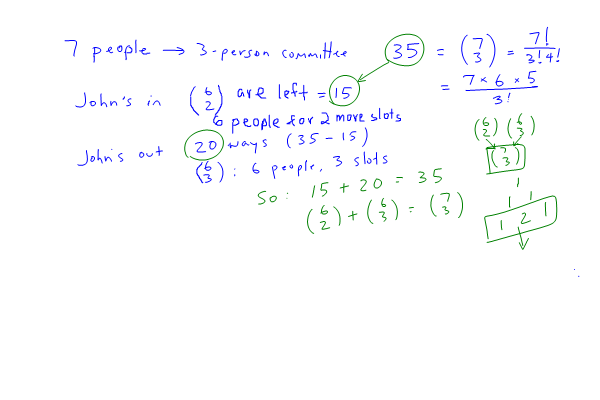 7 people → 3-person committee 35 = (7 3) = 7! / 3!4!
= 7 × 6 × 5 / 3!
John's in (6 2) are left = 15
6 people for 2 more slots
John's out 20 ways (35 - 15)
(6 3) : 6 people, 3 slots
So: 15 + 20 = 35
(6 2) + (6 3) = (7 3)
(6 2) (6 3)
(7 3)
1
1 1
1 2 1